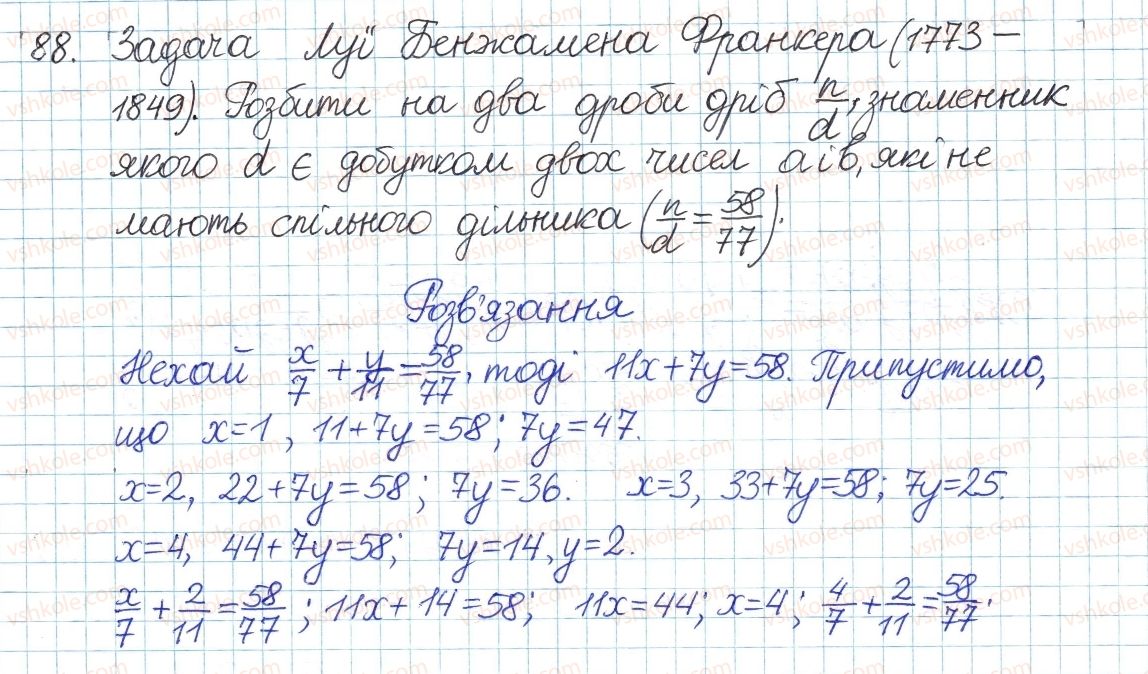 88. Задача Луї Бенжамена Франкера (1773 –
1849). Розбити на два дроби дріб n/d, знаменник
якого d є добутком двох чисел a і b, які не
мають спільного дільника (n/d = 58/77).
Розв'язання
Нехай x/7 + y/11 = 58/77, тоді 11x + 7y = 58. Припустимо,
що x = 1, 11 + 7y = 58; 7y = 47.
x = 2, 22 + 7y = 58; 7y = 36. x = 3, 33 + 7y = 58; 7y = 25.
x = 4, 44 + 7y = 58; 7y = 14, y = 2.
x/7 + 2/11 = 58/77; 11x + 14 = 58; 11x = 44; x = 4; 4/7 + 2/11 = 58/77.